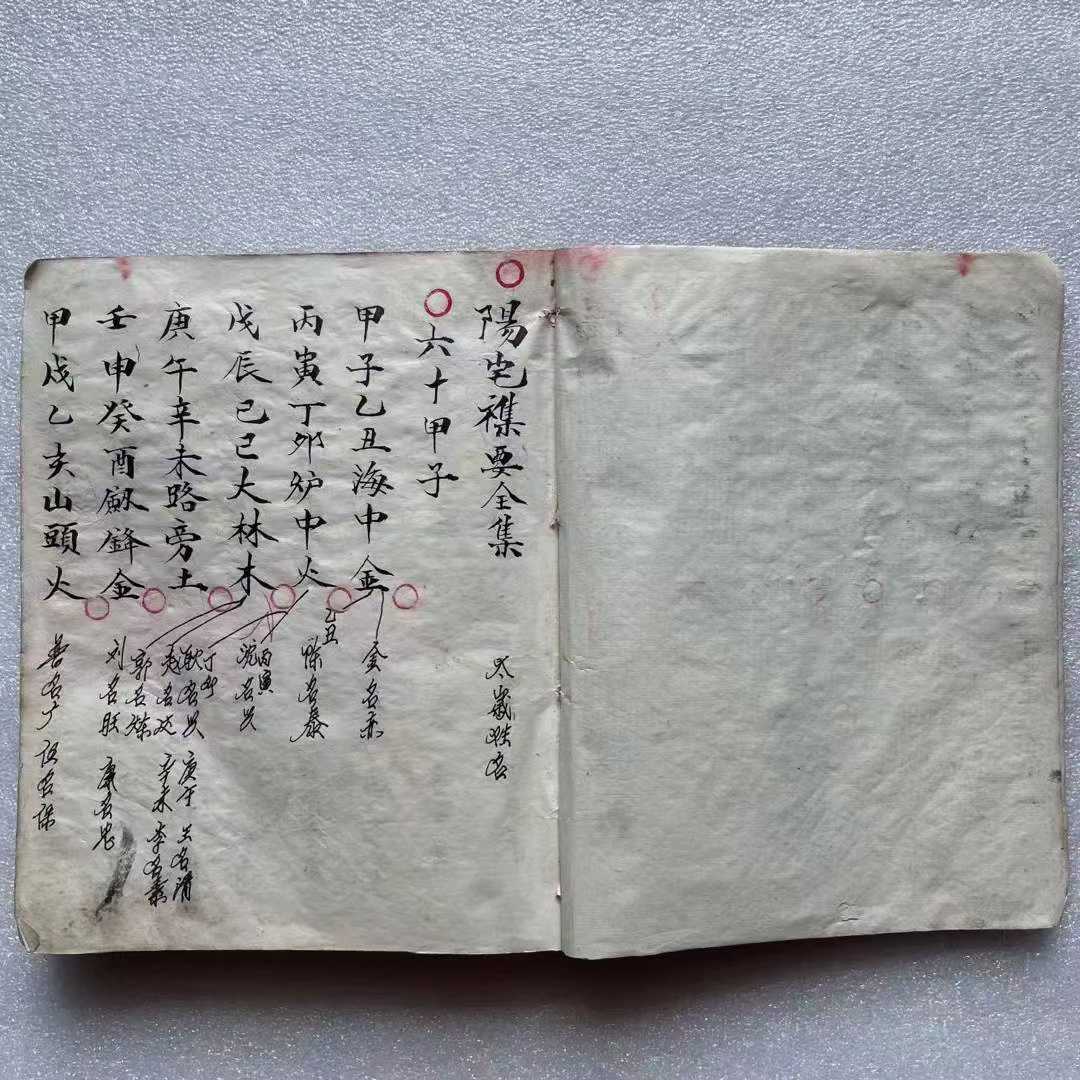 陽宅襍要全集
太歲姓名
六十甲子
甲子乙丑海中金
金名赤
乙丑
陳名泰
丙寅丁卯炉中火
丙寅
沈名兴
戊辰己巳大林木
丁卯
耿名兴
赵名达
郭名燦
庚午辛未路旁土
庚午 王名清
辛未 李名素
壬申癸酉劍鋒金
刘名旺 康名忠
甲戌乙亥山頭火
名广 伍名保